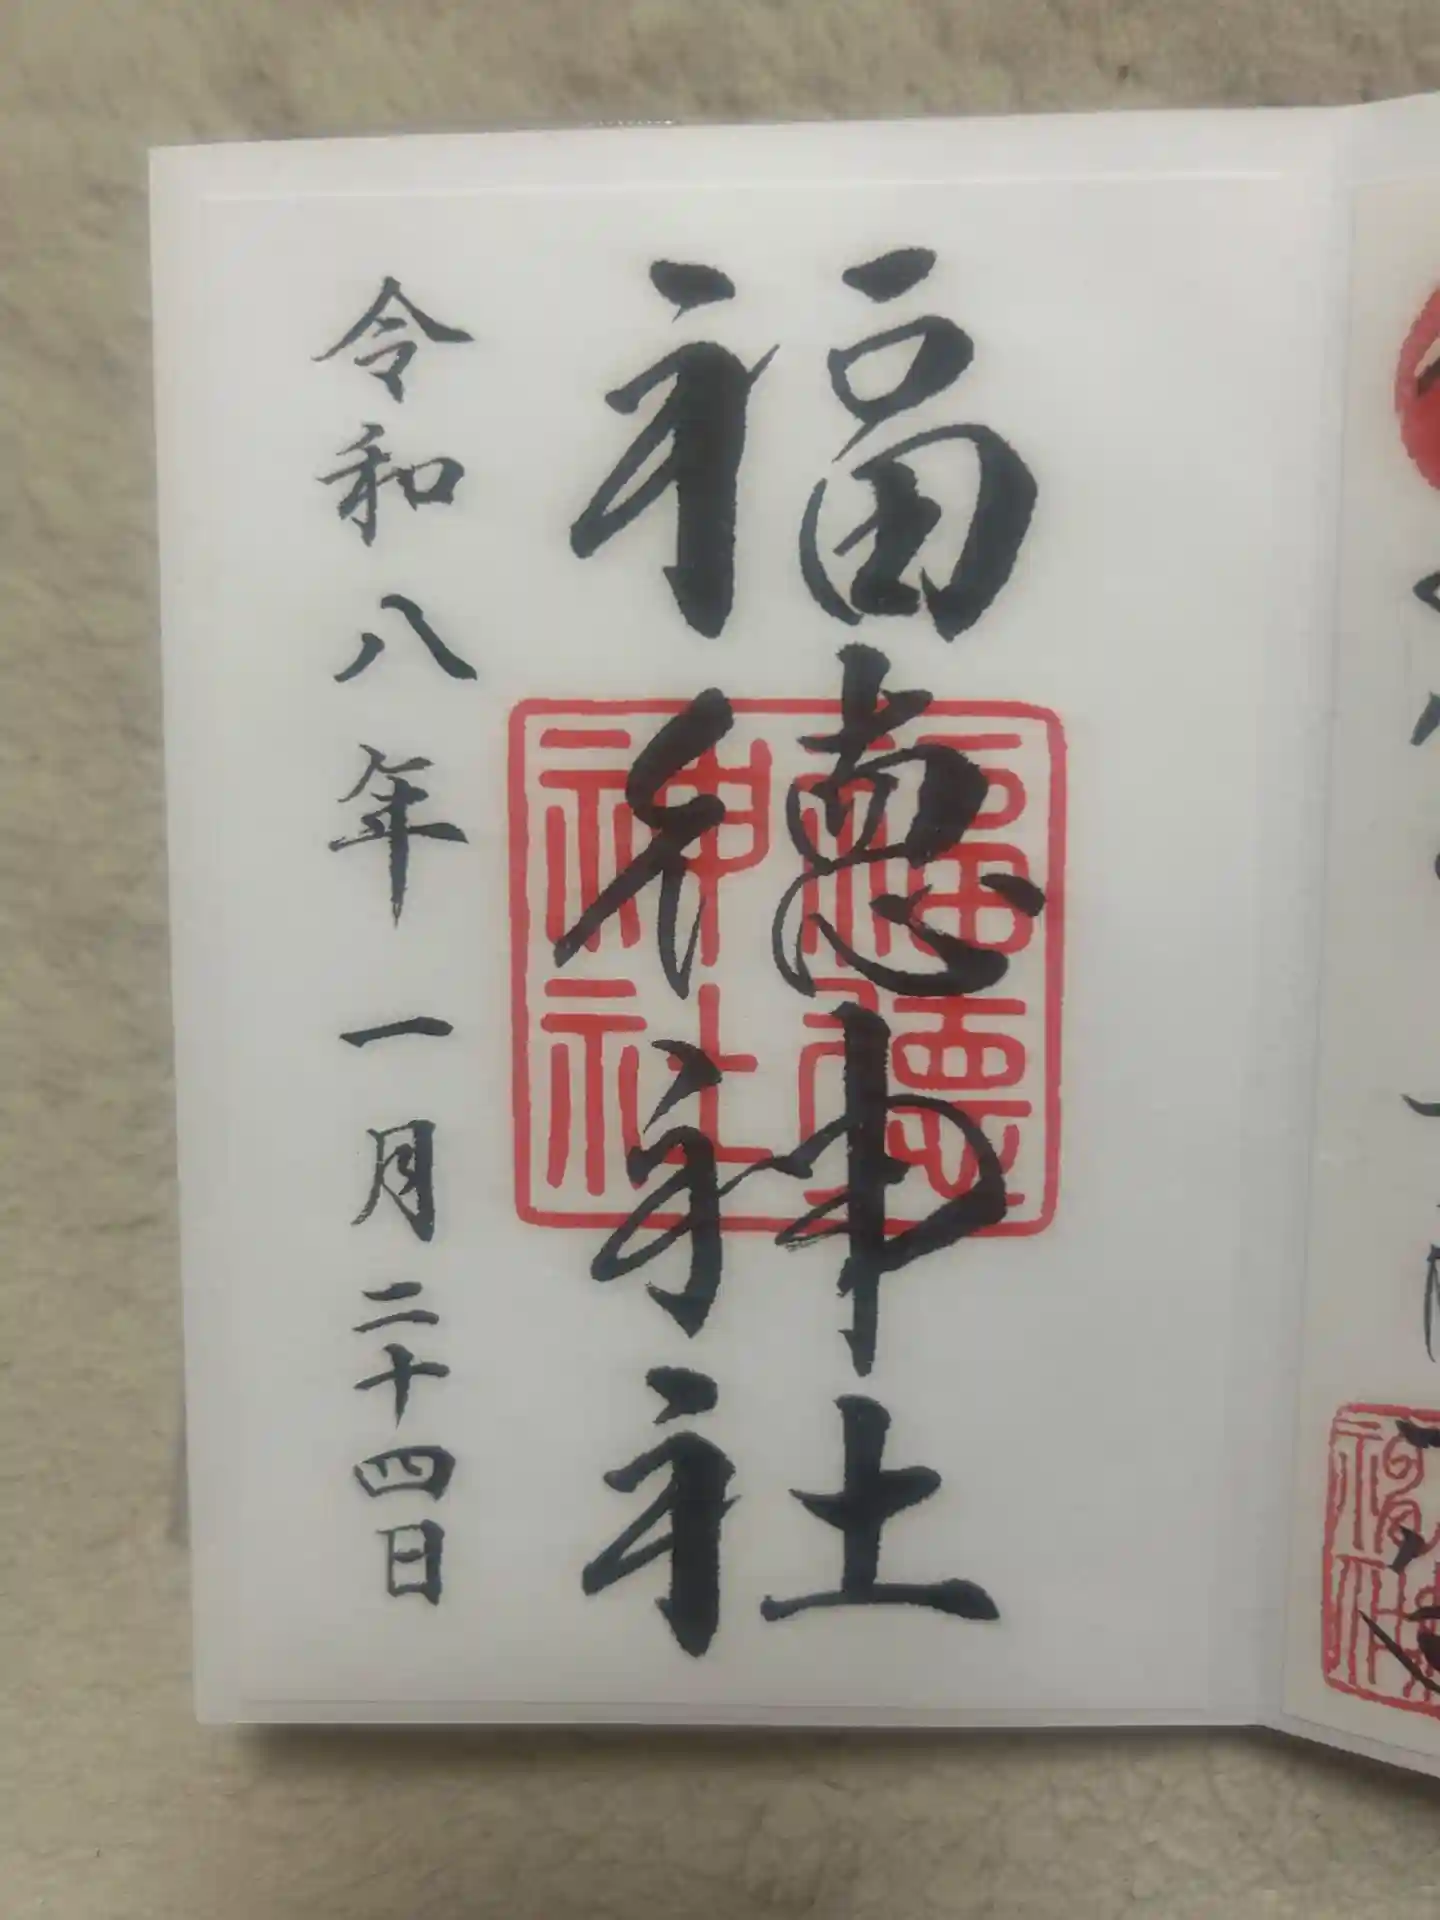 福徳神社
福徳神社
令和八年一月二十四日